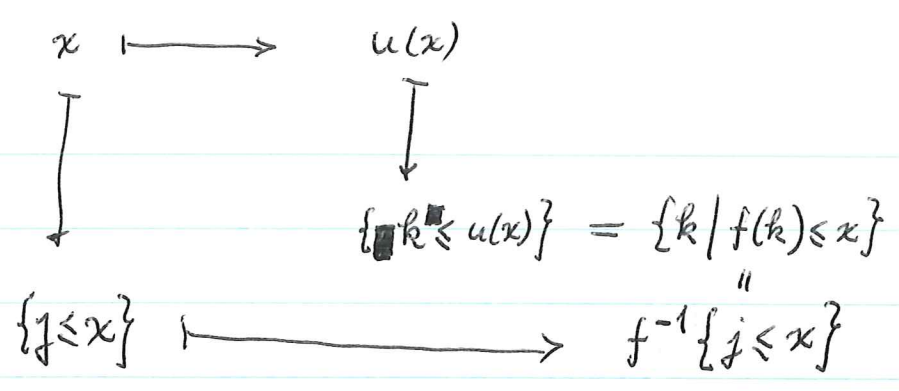 x ⟼ u(x)
{k ≤ u(x)} = {k | f(k) ≤ x}
=
{j ≤ x} ⟼ f⁻¹{j ≤ x}